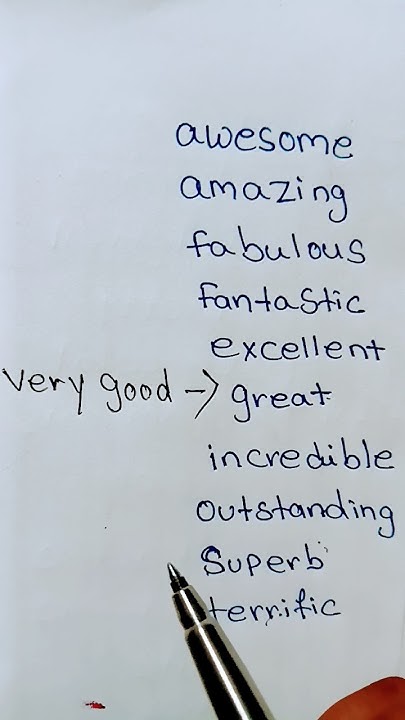 awesome
amazing
fabulous
fantastic
excellent
very good → great
incredible
outstanding
Superb
terrific